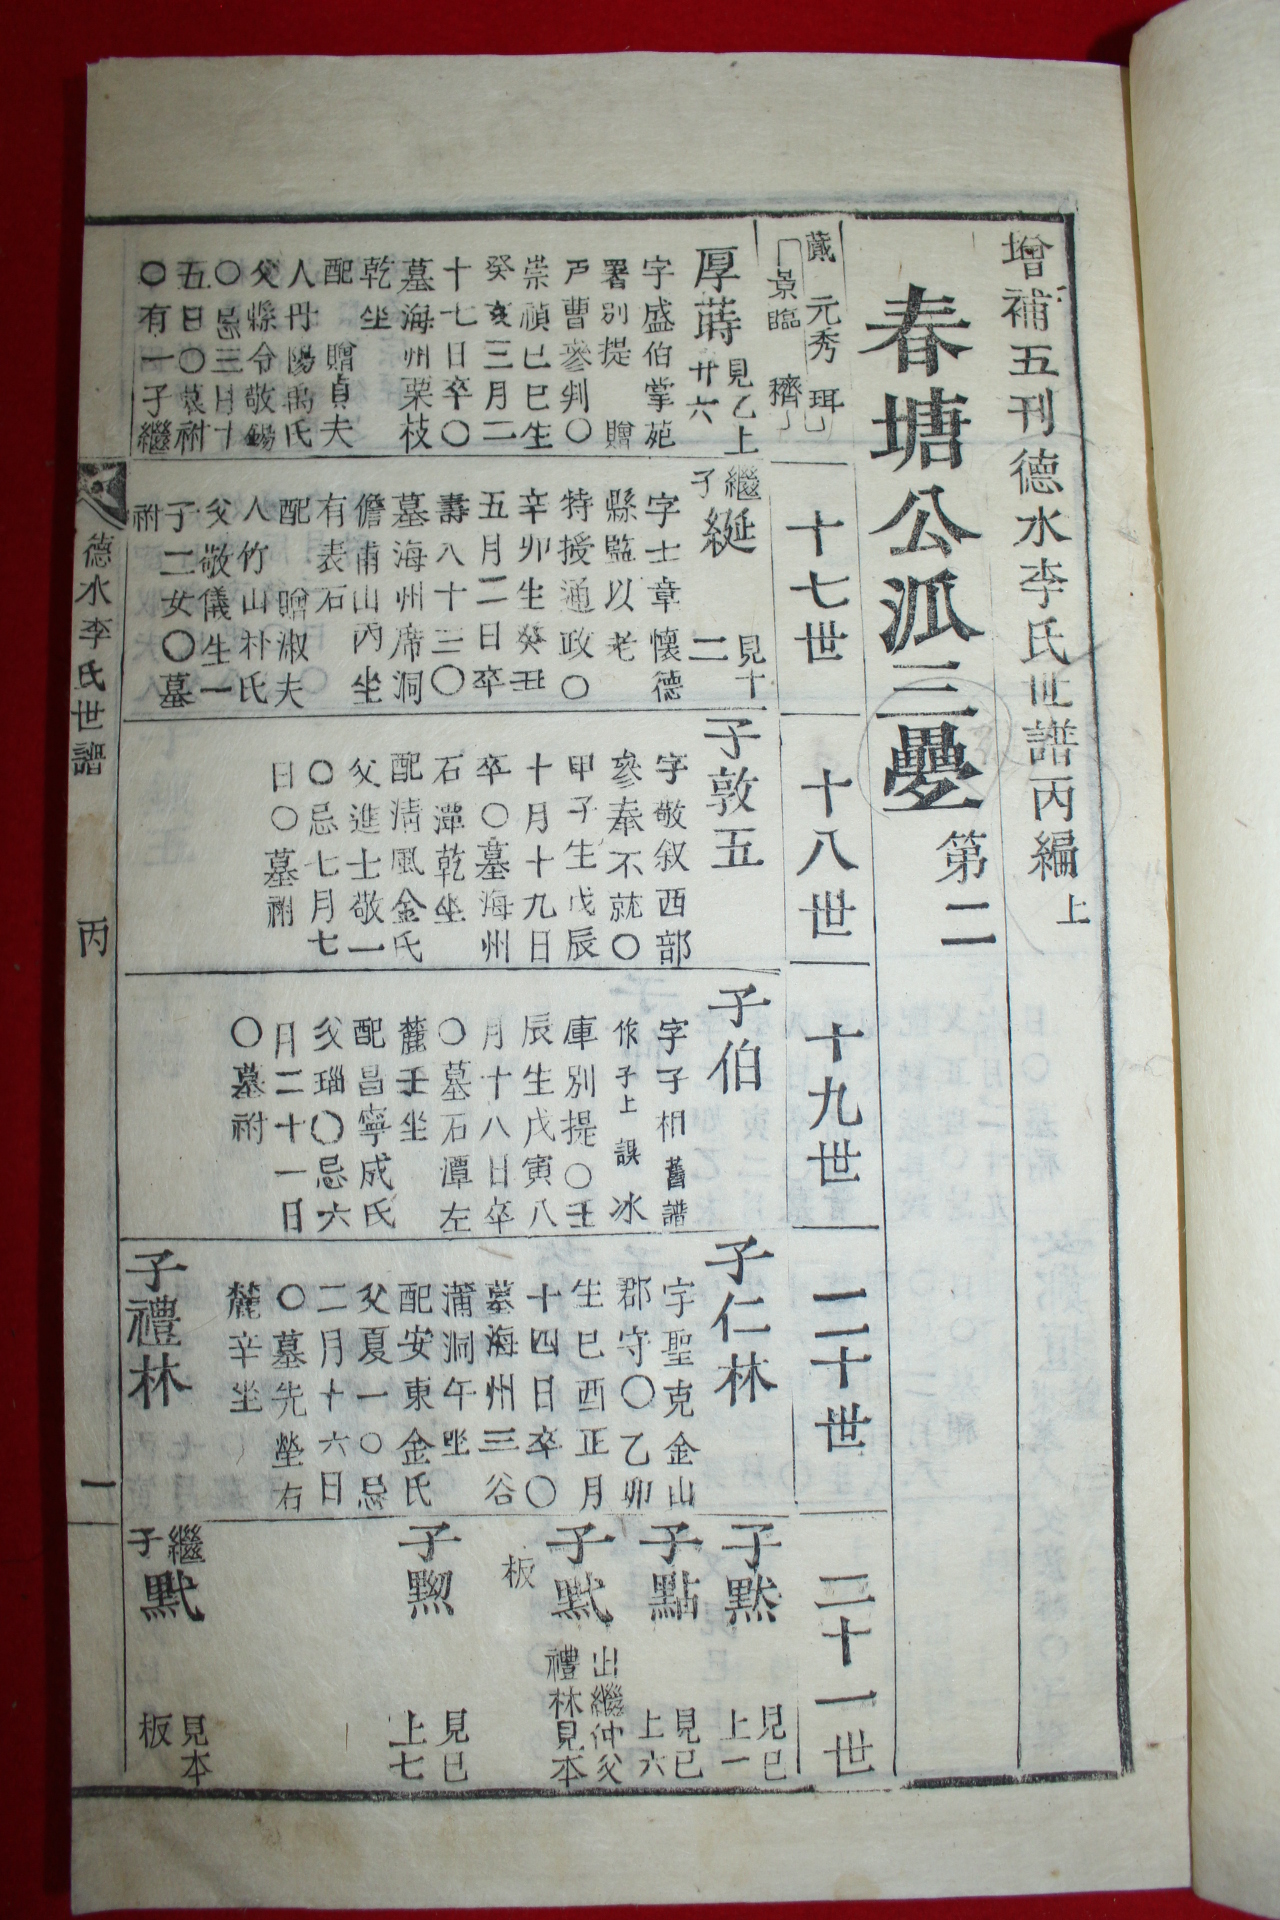 增補五刊德水李氏世譜丙編上
春塘公派三疊第二
蕆 元秀 珥
景臨 穧
厚蒔 見乙上廿六
字盛伯掌苑
署別提 贈
戶曹參判〇
崇禎己巳生
癸亥三月二
十七日卒〇
墓海州栗枝
乾坐
配 贈貞夫
人丹陽禹氏
父縣令敬錫
〇忌三月十
五日〇墓祔
〇有一子繼
十七世
繼子綖 見十二
字士章懷德
縣監以老
特授通政〇
辛卯生癸丑
五月二日卒
壽八十三〇
墓海州席洞
儋甫山丙坐
有表石
配 贈淑夫
人竹山朴氏
父敬儀生一
子二女〇墓
祔
十八世
子敦五
字敬叙西部
參奉不就〇
甲子生戊辰
十月十九日
卒〇墓海州
石潭乾坐
配淸風金氏
父進士敬一
〇忌七月七
日〇墓祔
十九世
子伯
字子相舊譜
作子上誤 冰
庫別提〇壬
辰生戊寅八
月十八日卒
〇墓石潭左
麓壬坐
配昌寧成氏
父瑙〇忌六
月二十一日
〇墓祔
二十世
子仁林
字聖克金山
郡守〇乙卯
生己酉正月
十四日卒〇
墓海州三谷
蒲洞午坐
配安東金氏
父夏一〇忌
二月十六日
〇墓先塋右
麓辛坐
子禮林
二十一世
子㷵 見巳上一
子點 見巳上六
子㱅 出繼仲父禮林見本板
子㷵 見巳上七
繼子㱅 見本板
德水李氏世譜 丙 一